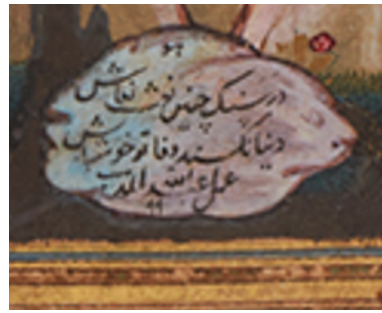 هو
در سنگ چنین نوشت نقاش
دنیا نکند وفا تو خوش باش
عمل عبدالله المذهب